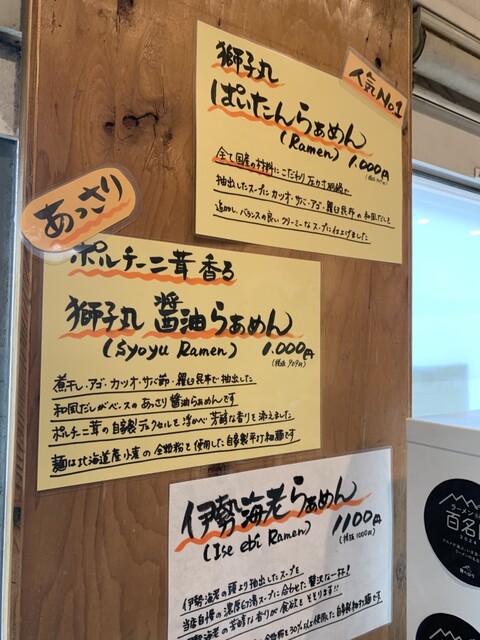 人気No.1
獅子丸
ぱいたんらぁめん
(Ramen) 1.000円
全て国産の材料にこだわり
抽出したスープにカツオ・サバ・アゴ・羅臼昆布の和風だしを
追加し、バランスの良いクリーミーなスープに仕上げました
あっさり
ポルチーニ茸香る
獅子丸 醤油らぁめん
(Syoyu Ramen) 1.000円
(税抜 909円)
煮干し・アゴ・カツオ・サバ節・羅臼昆布で抽出した
和風だしがベースのあっさり醤油らぁめんです
ポルチーニ茸の自家製デュクセルを浮かべ芳醇な香りを添えました
麺は北海道産小麦の全粒粉を使用した自家製平打細麺です
伊勢海老らぁめん
(Ise ebi Ramen) 1100円
(税抜1000円)
伊勢海老の頭より抽出したスープを
当店自慢の濃厚白湯スープに合わせた贅沢な一杯!
海老の芳醇な香りが食欲をそそります!!
全粒粉を30%以上使用した自家製細打麺です
ラーメン
百名店